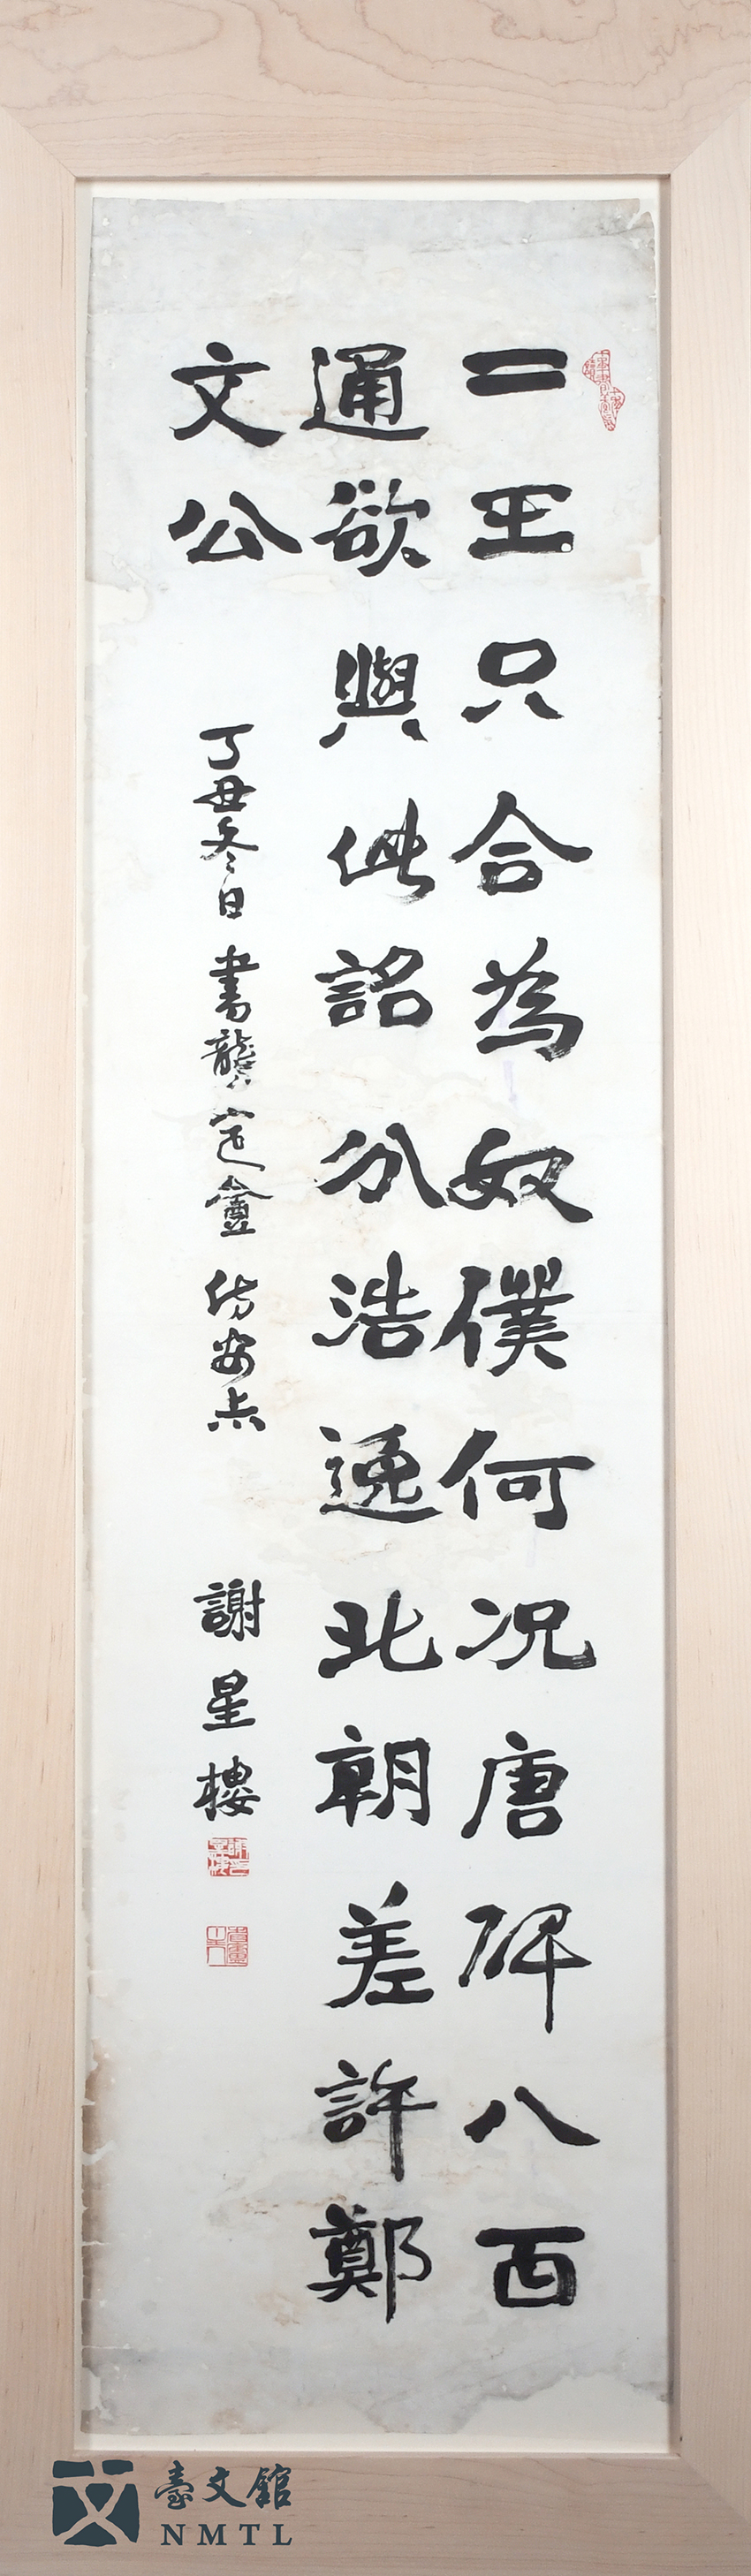 二王只合為奴僕何况唐碑八百
通欲與此詺分浩逸北朝差許鄭
文公
丁丑冬日 書龔定盦 倣安吳
謝星樓
臺文館
NMTL